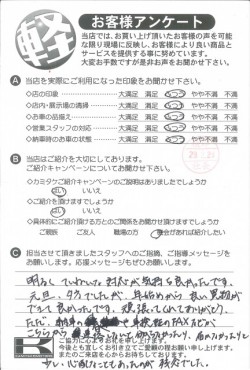 軽
お客様アンケート
当店では、お買い上げ頂いたお客様の声を可能
な限り現場に反映し、お客様により良い商品と
サービスを提供する事に努めています。
大変お手数ですが是非お声をお聞かせ下さい。
A 当店を実際にご利用になった印象をお聞かせ下さい。
◇店の印象 大満足 満足 ふつう やや不満 不満
◇店内・展示場の清掃 大満足 満足 ふつう やや不満 不満
◇お車の品揃え 大満足 満足 ふつう やや不満 不満
◇営業スタッフの対応 大満足 満足 ふつう やや不満 不満
◇納車時のお車の状態 大満足 満足 ふつう やや不満 不満
B 当店はご紹介を大切にしております。
ご紹介キャンペーンについてお聞かせ下さい。
◇カミタケご紹介キャンペーンのご説明はありましたでしょうか
はい いいえ
◇ご紹介を頂けますでしょうか
はい いいえ
◇具体的にご紹介頂ける方とのご関係をお聞かせ頂けますでしょうか
ご親族 ご友人 職場の方 機会があれば紹介したい
C 担当させて頂きましたスタッフへのご指摘、ご指導メッセージを
お願いします。応援メッセージもぜひお願いします。
明るく ていねいな 対応が気持ち良かったです。
元旦
年始めから 良い買物が
できて良かったです。頑張って
ただ、
ご協力に心よりお礼を申し上げます。
今後とも宜しくお引き立てご愛顧の程お願い申し上げます。
またのご来店を心からお待ちしております。